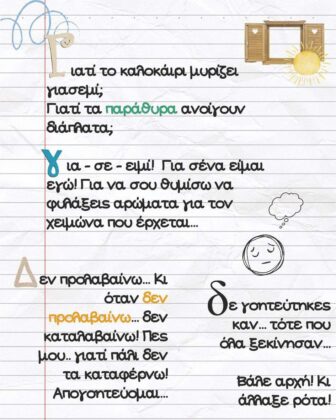 Γιατί το καλοκαίρι μυρίζει
γιασεμί;
Γιατί τα παράθυρα ανοίγουν
διάπλατα;
για - σε - εμί! Για σένα είμαι
εγώ! Για να σου θυμίσω να
φυλάξεις αρώματα για τον
χειμώνα που έρχεται...
Δεν προλαβαίνω... Κι
όταν δεν
προλαβαίνω... δεν
καταλαβαίνω! Πες
μου.. γιατί πάλι δεν
τα καταφέρνω!
Απογοητεύομαι...
δε γοητεύτηκες
καν... τότε που
όλα ξεκίνησαν...
Βάλε αρχή! Κι
άλλαξε ρότα!